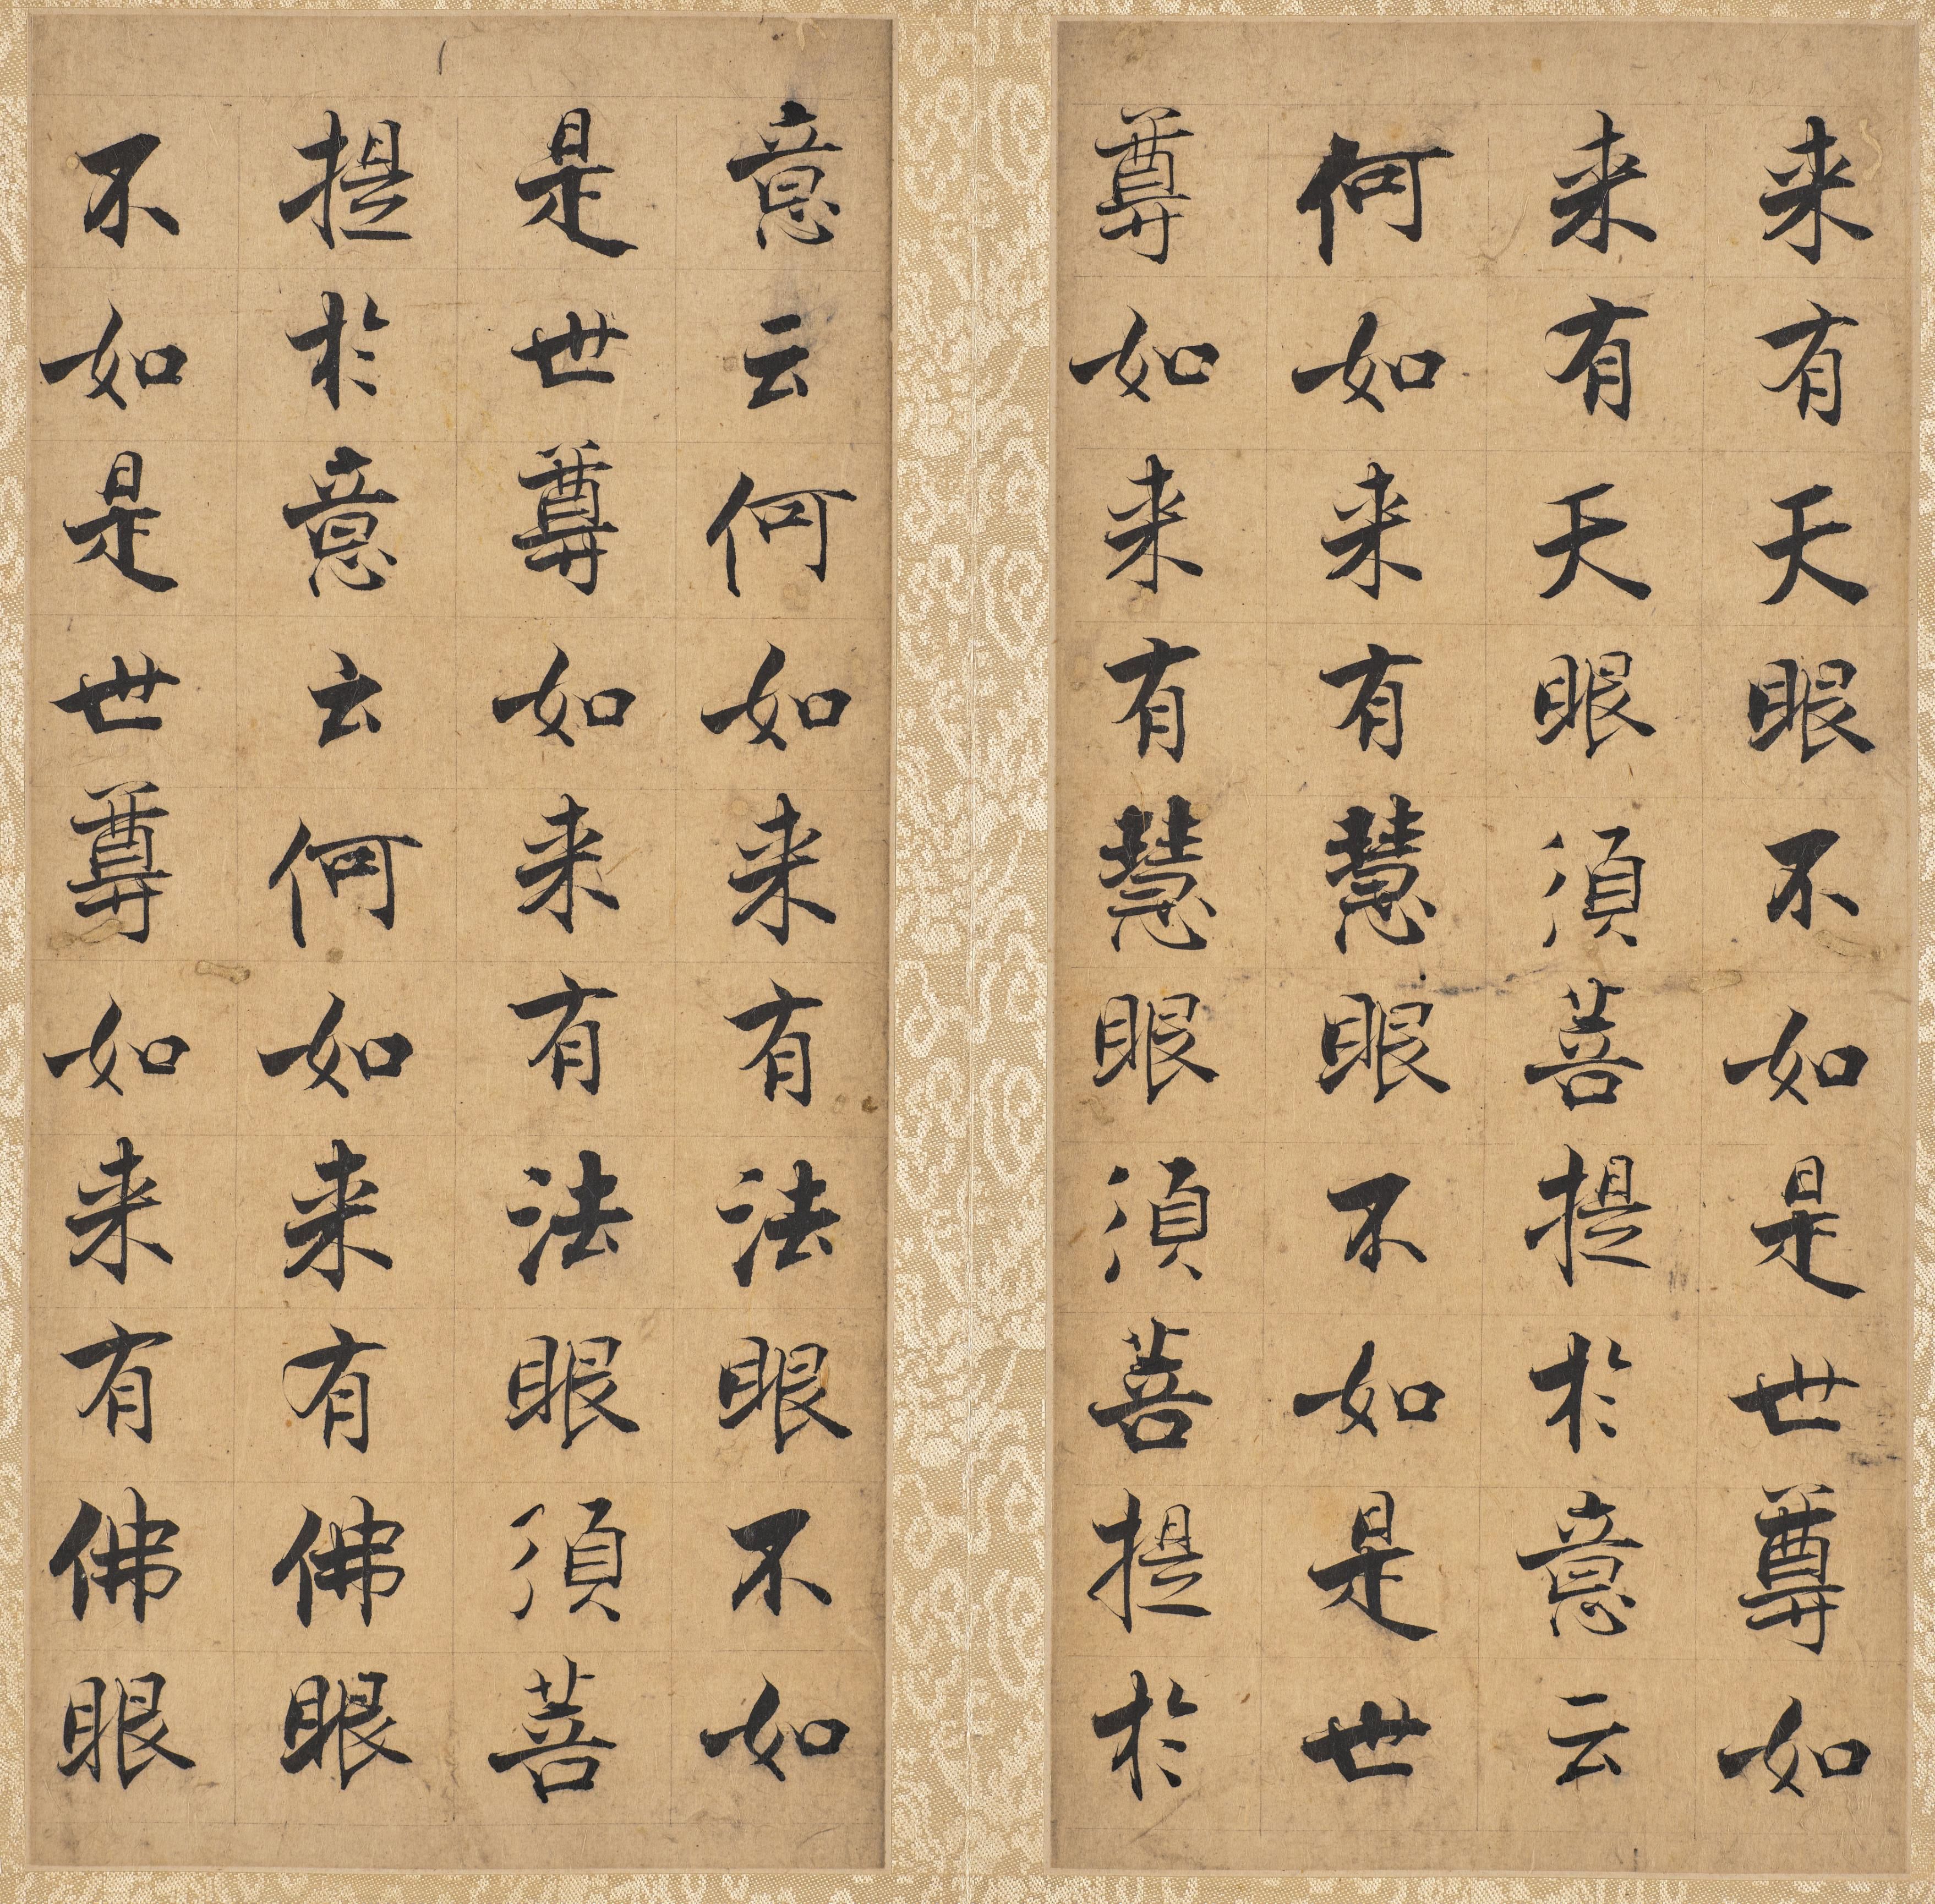 来有天眼不如是世尊如
来有天眼須菩提於意云
何如来有慧眼不如是世
尊如来有慧眼須菩提於
意云何如来有法眼不如
是世尊如来有法眼須菩
提於意云何如来有佛眼
不如是世尊如来有佛眼